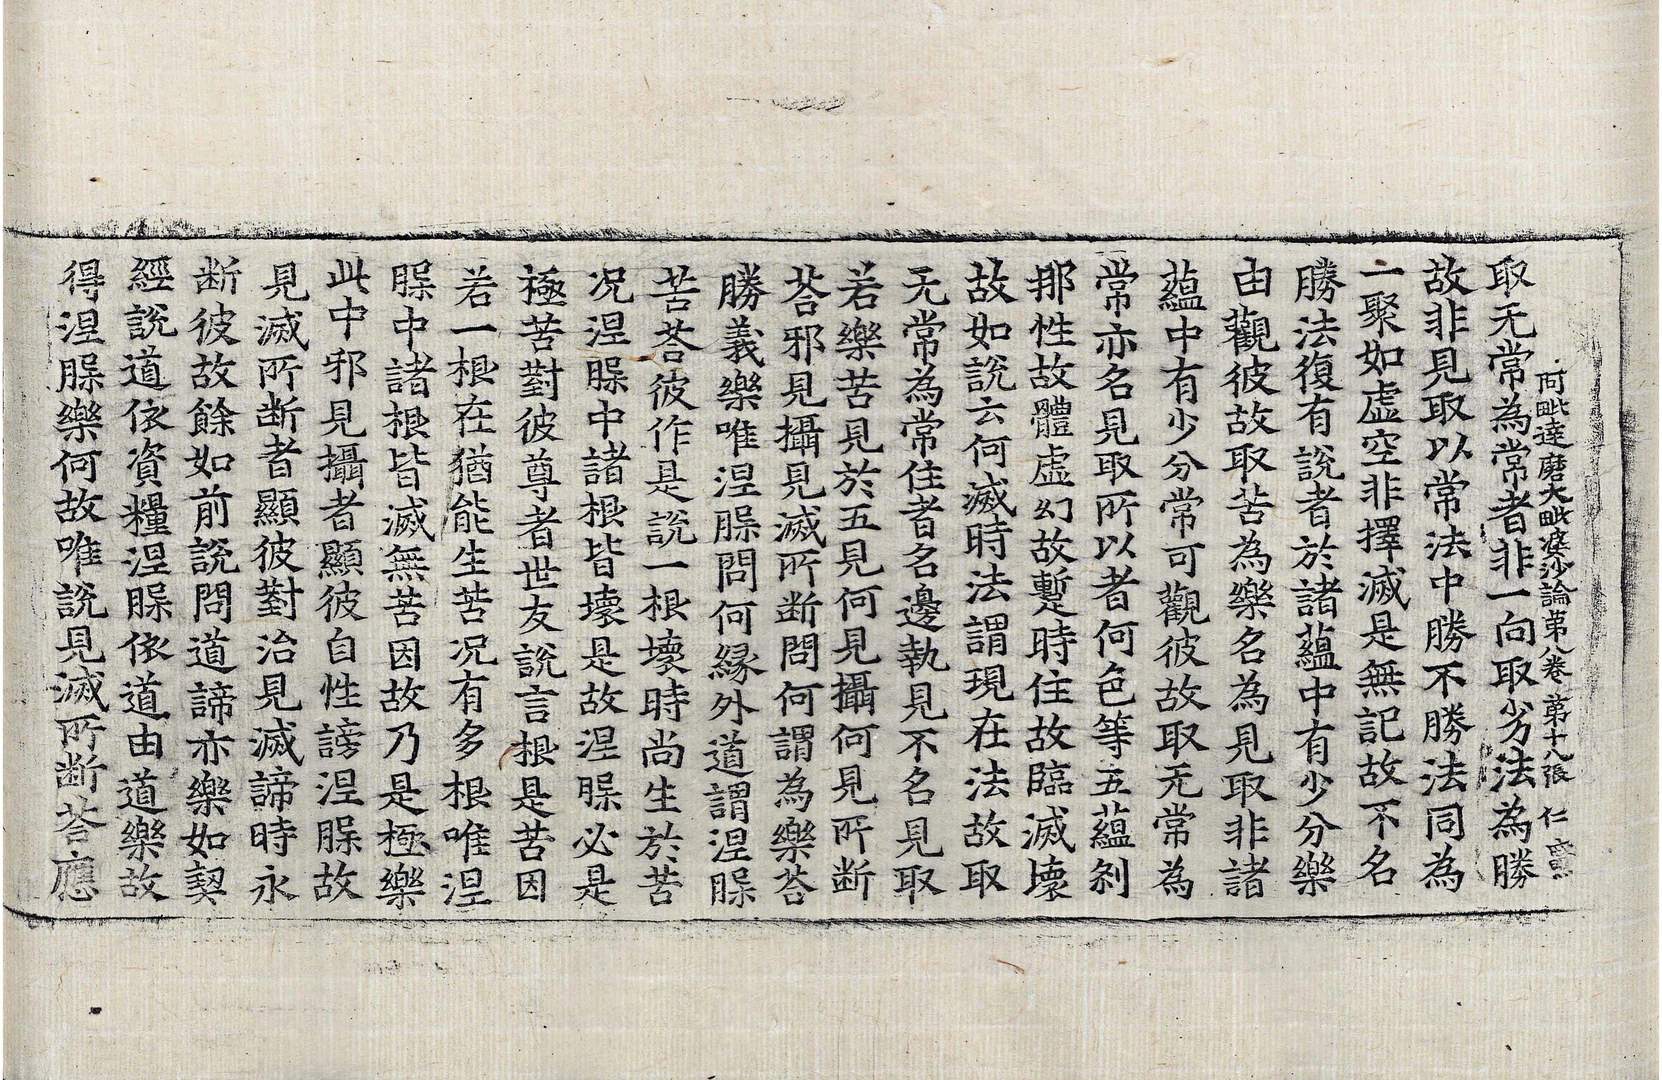 阿毗達磨大毗婆沙論第八卷 第十八張 仁
取无常為常者非一向取劣法為勝
故非見取以常法中勝不勝法同為
一聚如虛空非擇滅是無記故不名
勝法復有說者於諸蘊中有少分樂
由觀彼故取苦為樂名為見取非諸
蘊中有少分常可觀彼故取无常為
常亦名見取所以者何色等五蘊剎
那性故體虛幻故蹔時住故臨滅壞
故如說云何滅時法謂現在法故取
无常為常住者名邊執見不名見取
若樂苦見於五見何見攝何見所断
荅邪見攝見滅所断問何謂為樂荅
勝義樂唯涅槃問何緣外道謂涅槃
苦荅彼作是說一根壞時尚生於苦
况涅槃中諸根皆壞是故涅槃必是
極苦對彼尊者世友說言根是苦因
若一根在猶能生苦况有多根唯涅
槃中諸根皆滅無苦因故乃是極樂
此中邪見攝者顯彼自性謗涅槃故
見滅所断者顯彼對治見滅諦時永
断彼故餘如前說問道諦亦樂如契
經說道依資糧涅槃依道由道樂故
得涅槃樂何故唯說見滅所断荅應